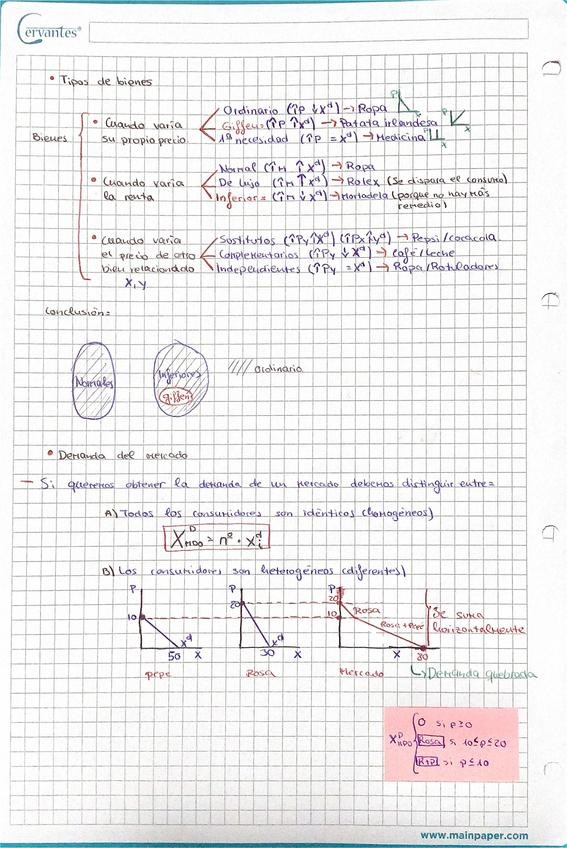 Cervantes®
• Tipos de bienes
Bienes
• Cuando varía su propio precio
Ordinario (↑P ↓X^d) → Ropa
Giffen (↑P ↑X^d) → Patata irlandesa
1ª necesidad (↑P = X^d) → Medicina
• Cuando varía la renta
Normal (↑M ↑X^d) → Ropa
De lujo (↑M ↑X^d) → Rolex (Se dispara el consumo)
Inferior = (↑M ↓X^d) → Mortadela (porque no hay más remedio)
• Cuando varía el precio de otro bien relacionado X, Y
Sustitutos (↑Py ↑X^d) (↑Px ↑Y^d) → Pepsi/cocacola
Complementarios (↑Py ↓X^d) → Café/leche
Independientes (↑Py = X^d) → Ropa/Rotuladores
Conclusión:
Normales
Inferiores
Giffen
//// Ordinario
• Demanda del mercado
— Si queremos obtener la demanda de un mercado debemos distinguir entre =
A) Todos los consumidores son idénticos (homogéneos)
X^D_MDO = nº · X^d_i
B) Los consumidores son heterogéneos (diferentes)
P 10 X^d 50 X
Pepe
P 20 X^d 30 X
Rosa
P 20 10 Rosa Rosa+Pepe X 80
Mercado
Se suma horizontalmente
↳ Demanda quebrada
X^D_MDO
0 si p≥0
Rosa si 10≤p≤20
R+P si p≤10
www.mainpaper.com